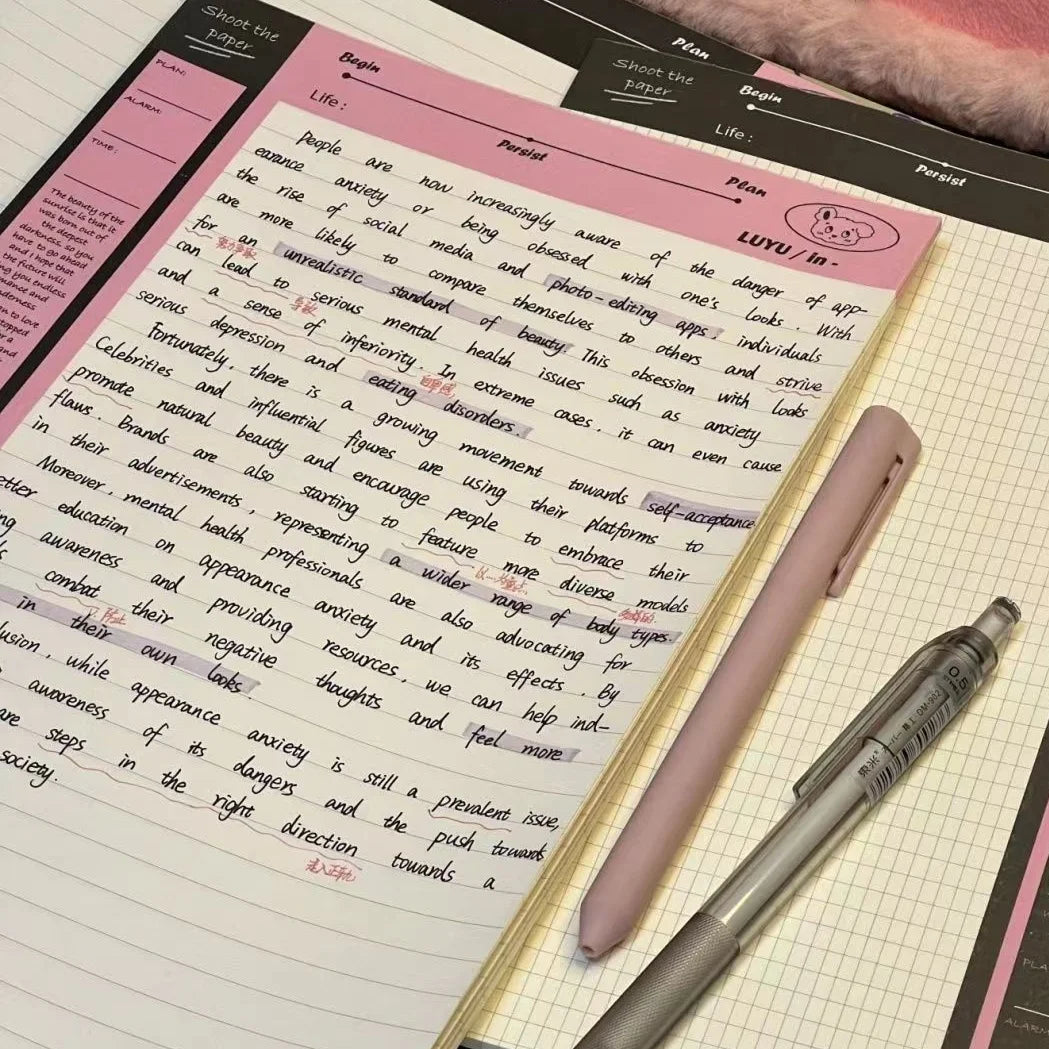 Shoot the
paper
PLAN:
ALARM:
TIME:
The beauty of the
sunrise is that it
was born out of
the deepest
darkness, so you
have to go ahead
and I hope that
the future will
you endless
and
to love
stopped
and
Begin
Life:
Persist
Plan
LUYU / in -
People are now increasingly aware of the danger of app-
earance anxiety or being obsessed with one's looks. With
the rise of social media and photo-editing apps, individuals
are more likely to compare themselves to others and strive
for an unrealistic standard of beauty. This obsession with looks
can lead to serious mental health issues such as anxiety
导致
and a sense of inferiority. In extreme cases, it can even cause
自卑感
serious depression and eating disorders.
Fortunately, there is a growing movement towards self-acceptance
Celebrities and influential figures are using their platforms to
promote natural beauty and encourage people to embrace their
flaws. Brands are also starting to feature more diverse models
in their advertisements, representing a wider range of body types.
Moreover, mental health professionals are also advocating for
etter education on appearance anxiety and its effects. By
ng awareness and providing resources, we can help ind-
s combat their negative thoughts and feel more
in their own looks
lusion, while appearance anxiety is still a prevalent issue,
awareness of its dangers and the push towards
are steps in the right direction towards a
走入正轨
society.
Plan
Shoot the
paper
Begin
Life:
Persist
0.5
PLA
ALARM